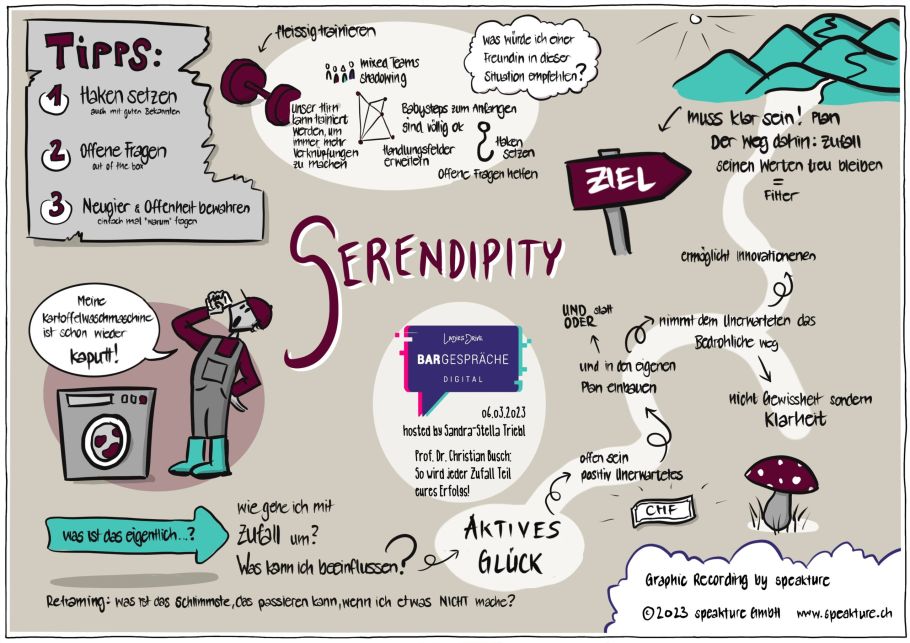 TIPPS:
1 Haken setzen
auch mit guten Bekannten
2 Offene Fragen
out of the box
3 Neugier & Offenheit bewahren
einfach mal "warum" fragen
fleissig trainieren
mixed Teams
shadowing
was würde ich einer
Freundin in dieser
Situation empfehlen?
unser Hirn
kann trainiert
werden, um
immer mehr
Verknüpfungen
zu machen
Babysteps zum Anfangen
sind völlig ok
Handlungsfelder
erweitern
Haken
setzen
Offene Fragen helfen
ZIEL
muss klar sein! Plan
Der Weg dahin: Zufall
seinen Werten treu bleiben
=
Filter
SERENDIPITY
Meine
Kartoffelwaschmaschine
ist schon wieder
kaputt!
Ladies Drive
BARGESPRÄCHE
DIGITAL
06.03.2023
hosted by Sandra-Stella Triebl
Prof. Dr. Christian Busch:
So wird jeder Zufall Teil
eures Erfolgs!
ermöglicht Innovationenen
UND statt
ODER
nimmt dem Unerwarteten das
Bedrohliche weg
und in den eigenen
Plan einbauen
nicht Gewissheit sondern
Klarheit
offen sein
positiv Unerwartetes
CHF
was ist das eigentlich...?
wie gehe ich mit
Zufall um?
Was kann ich beeinflussen?
AKTIVES
GLÜCK
Reframing: was ist das Schlimmste, das passieren kann, wenn ich etwas NICHT mache?
Graphic Recording by speakture
©2023 speakture GmbH www.speakture.ch